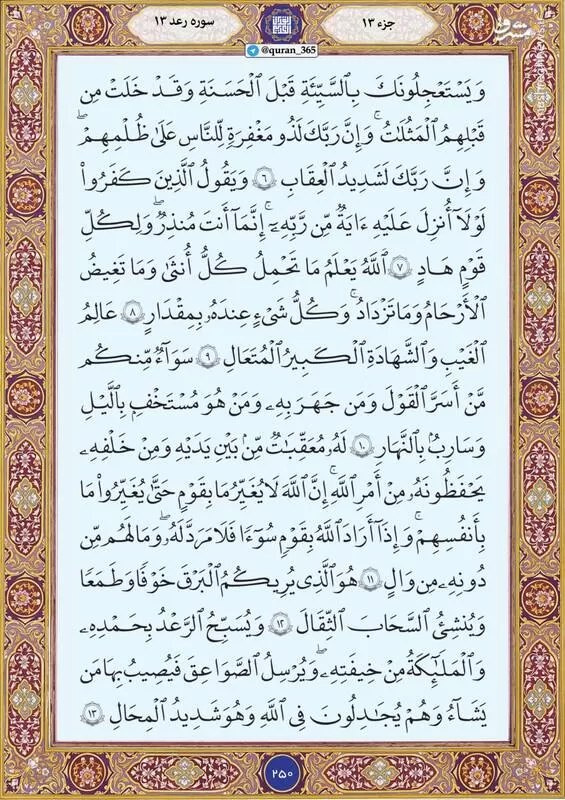 جزء ۱۳
سوره رعد ۱۳
@quran_365
مشرق
وَيَسْتَعْجِلُونَكَ بِالسَّيِّئَةِ قَبْلَ الْحَسَنَةِ وَقَدْ خَلَتْ مِن
قَبْلِهِمُ الْمَثُلَاتُ ۗ وَإِنَّ رَبَّكَ لَذُو مَغْفِرَةٍ لِّلنَّاسِ عَلَىٰ ظُلْمِهِمْ ۖ
وَإِنَّ رَبَّكَ لَشَدِيدُ الْعِقَابِ ٦ وَيَقُولُ الَّذِينَ كَفَرُوا
لَوْلَا أُنزِلَ عَلَيْهِ ءَايَةٌ مِّن رَّبِّهِ ۗ إِنَّمَا أَنتَ مُنذِرٌ ۖ وَلِكُلِّ
قَوْمٍ هَادٍ ٧ اللَّهُ يَعْلَمُ مَا تَحْمِلُ كُلُّ أُنثَىٰ وَمَا تَغِيضُ
الْأَرْحَامُ وَمَا تَزْدَادُ ۖ وَكُلُّ شَىْءٍ عِندَهُ بِمِقْدَارٍ ٨ عَالِمُ
الْغَيْبِ وَالشَّهَادَةِ الْكَبِيرُ الْمُتَعَالِ ٩ سَوَاءٌ مِّنكُم
مَّنْ أَسَرَّ الْقَوْلَ وَمَن جَهَرَ بِهِ وَمَنْ هُوَ مُسْتَخْفٍ بِالَّيْلِ
وَسَارِبٌ بِالنَّهَارِ ١٠ لَهُ مُعَقِّبَاتٌ مِّن بَيْنِ يَدَيْهِ وَمِنْ خَلْفِهِ
يَحْفَظُونَهُ مِنْ أَمْرِ اللَّهِ ۗ إِنَّ اللَّهَ لَا يُغَيِّرُ مَا بِقَوْمٍ حَتَّىٰ يُغَيِّرُوا مَا
بِأَنفُسِهِمْ ۗ وَإِذَا أَرَادَ اللَّهُ بِقَوْمٍ سُوءًا فَلَا مَرَدَّ لَهُ ۚ وَمَا لَهُم مِّن
دُونِهِ مِن وَالٍ ١١ هُوَ الَّذِي يُرِيكُمُ الْبَرْقَ خَوْفًا وَطَمَعًا
وَيُنشِئُ السَّحَابَ الثِّقَالَ ١٢ وَيُسَبِّحُ الرَّعْدُ بِحَمْدِهِ
وَالْمَلَٰئِكَةُ مِنْ خِيفَتِهِ ۖ وَيُرْسِلُ الصَّوَاعِقَ فَيُصِيبُ بِهَا مَن
يَشَاءُ وَهُمْ يُجَٰدِلُونَ فِي اللَّهِ وَهُوَ شَدِيدُ الْمِحَالِ ١٣
۲۵۰